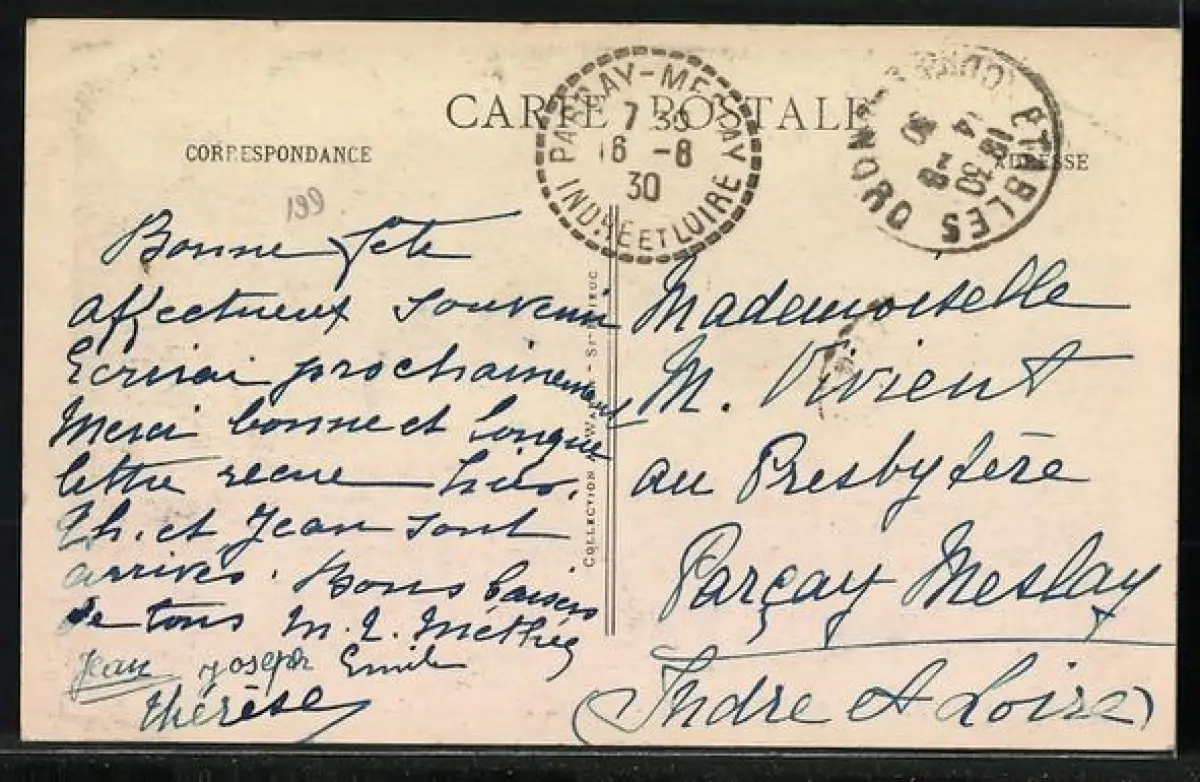 CARTE POSTALE
CORRESPONDANCE
ADRESSE
199
PARÇAY-MESLAY
7 30
16 -8
30
INDRE ET LOIRE
ETABLES
CÔTES DU NORD
14
30
Bonne fête
affectueux souvenir
Ecrirai prochainement
Merci bonne et longue
lettre reçue hier.
Th. et Jean sont
arrivés. Bons baisers
de tous M. L.
Jean Joseph Emile
Thérèse
COLLECTION
Mademoiselle
M. Vivient
au Presbytère
Parçay Meslay
(Indre et Loire)